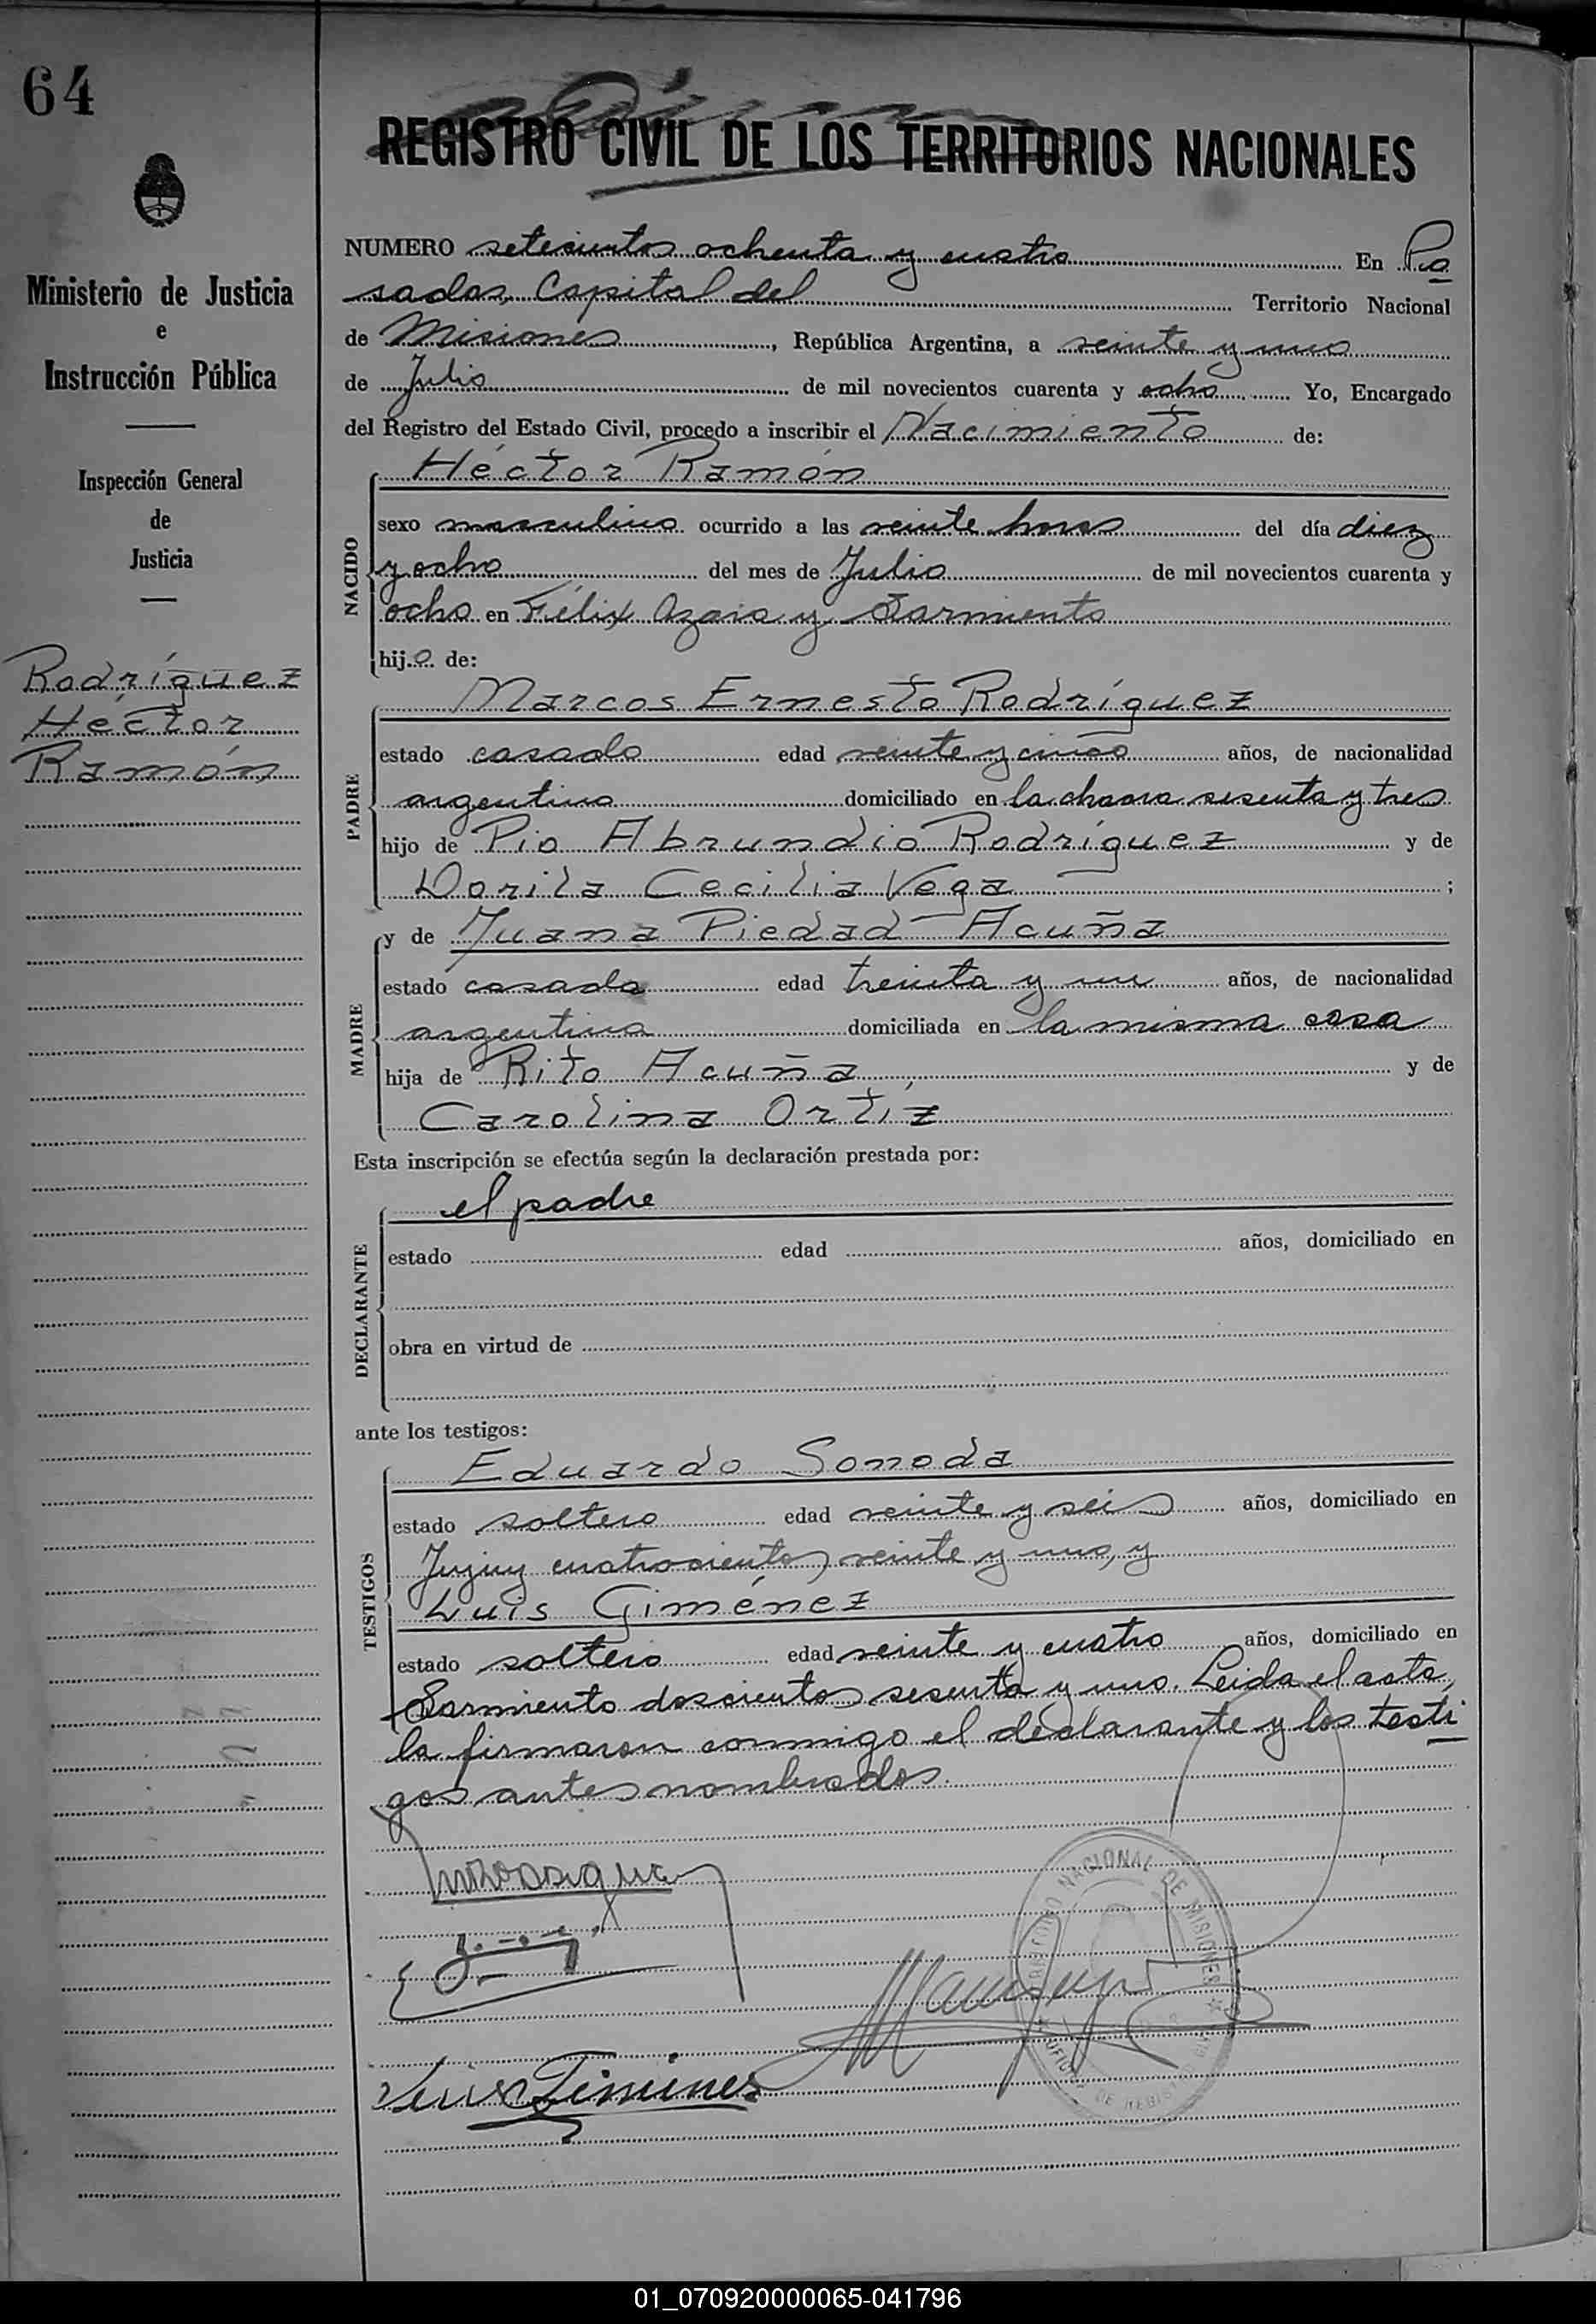 64
REGISTRO CIVIL DE LOS TERRITORIOS NACIONALES
Ministerio de Justicia
e
Instrucción Pública
Inspección General
de
Justicia
Rodríguez
Héctor
Ramón
NUMERO setecientos ochenta y cuatro En Po
sadas, Capital del Territorio Nacional
de Misiones, República Argentina, a veinte y uno
de Julio de mil novecientos cuarenta y ocho Yo, Encargado
del Registro del Estado Civil, procedo a inscribir el Nacimiento de:
NACIDO
Héctor Ramón
sexo masculino ocurrido a las veinte horas del día diez
y ocho del mes de Julio de mil novecientos cuarenta y
ocho en Félix Azara y Sarmiento
hijo de:
PADRE
Marcos Ernesto Rodríguez
estado casado edad veinte y cinco años, de nacionalidad
argentina domiciliado en la chacra sesenta y tres
hijo de Pio Abrundio Rodríguez y de
Dorila Cecilia Vega;
MADRE
y de Juana Piedad Acuña
estado casada edad treinta y un años, de nacionalidad
argentina domiciliada en la misma casa
hija de Rito Acuña, y de
Carolina Ortíz
Esta inscripción se efectúa según la declaración prestada por:
DECLARANTE
el padre
estado edad años, domiciliado en
obra en virtud de
ante los testigos:
TESTIGOS
Eduardo Sonoda
estado soltero edad veinte y seis años, domiciliado en
Jujuy cuatrocientos veinte y uno, y
Luis Giménez
estado soltero edad veinte y cuatro años, domiciliado en
Sarmiento doscientos sesenta y uno. Leida el acta,
la firmaron conmigo el declarante y los testi
gos antes nombrados.
Luis Gimenez
NACIONAL DE MISIONES
01_070920000065-041796